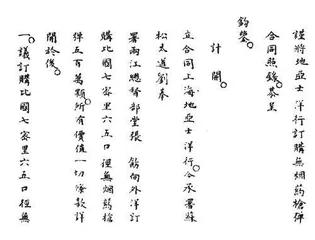 謹將地亞士洋行訂購無煙葯槍彈
合同照錄恭呈
鈞鑒
計開
立合同上海地亞士洋行今承署蘇
松太道劉奉
署兩江總督部堂張 飭向外洋訂
購比國七密里六五口徑無烟葯槍
彈五百萬顆所有價值一切條款詳
開於後
一議訂購比國七密里六五口徑無